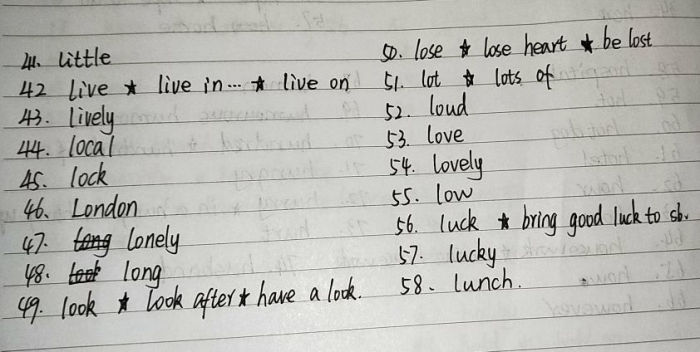 41. little
42 live ★ live in... ★ live on
43. lively
44. local
45. lock
46. London
47. long lonely
48. look long
49. look ★ look after ★ have a look.
50. lose ★ lose heart ★ be lost
51. lot ★ lots of
52. loud
53. love
54. lovely
55. low
56. luck ★ bring good luck to sb.
57. lucky
58. lunch.